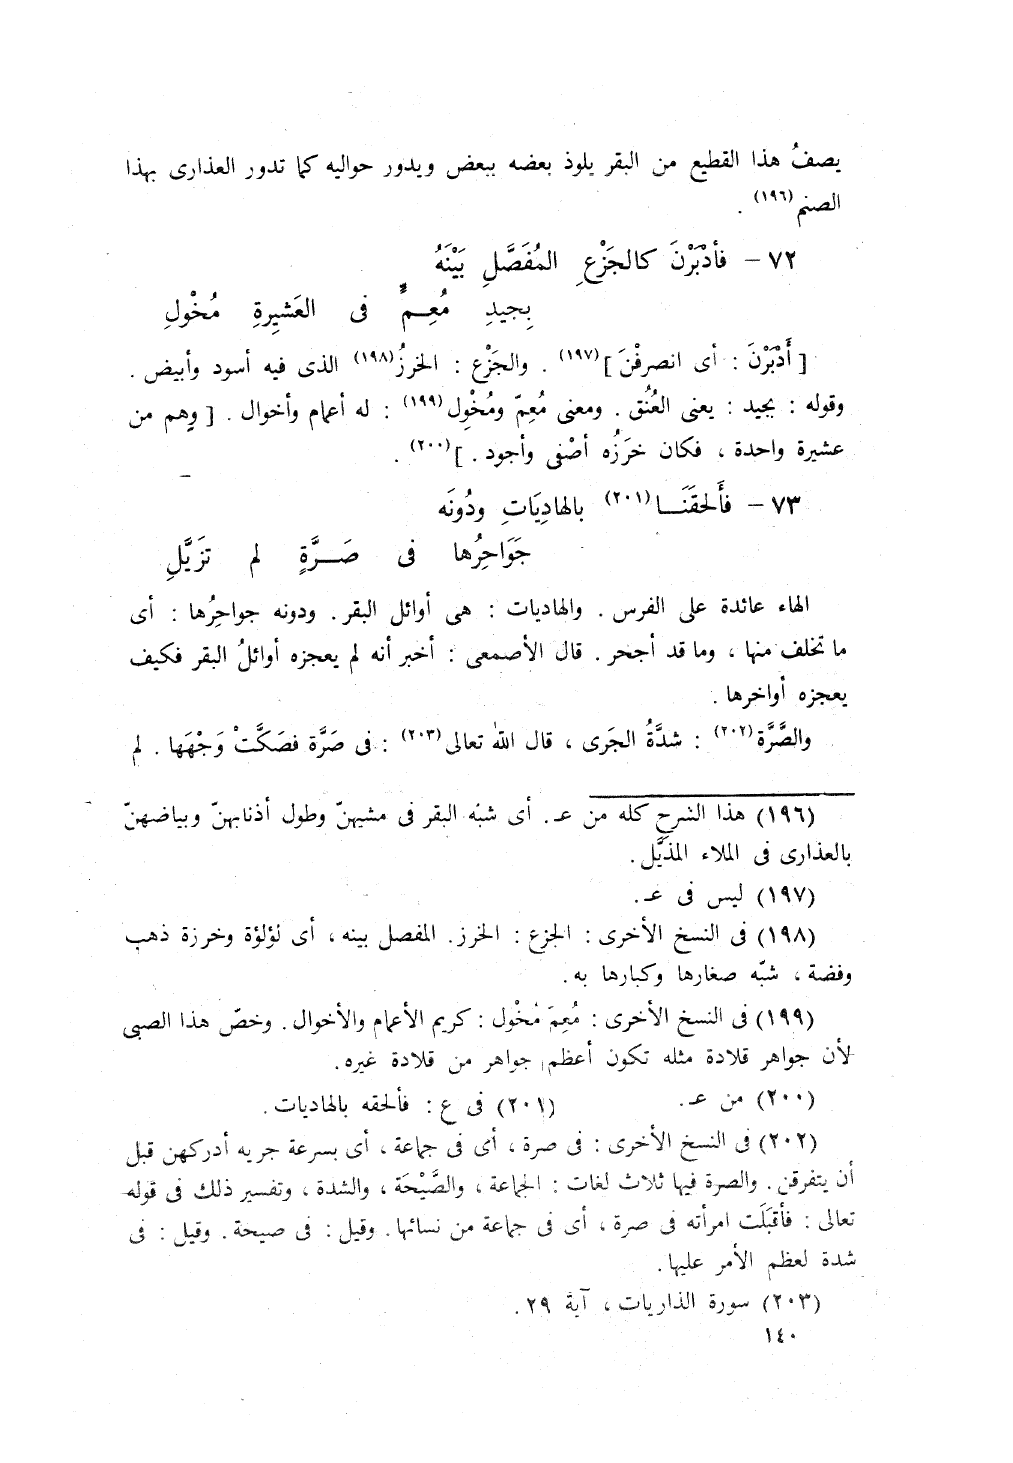 يصفُ هذا القطيع من البقر يلوذ بعضه ببعض ويدور حواليه كما تدور العذارى بهذا
الصنم(١٩٦) .
٧٢ – فأدْبَرْنَ كالجَزْعِ المُفَصَّلِ بَيْنَهُ
بِجيدِ مُعِـمٍّ فى العَشيِرةِ مُخْولِ
[ أَدْبَرْنَ : أى انصرفْنَ ](١٩٧) . والجَزْع : الخرزُ(١٩٨) الذى فيه أسود وأبيض .
وقوله : بجيد : يعنى العُنُق . ومعنى مُعِمّ ومُخْوِل(١٩٩) : له أعمام وأخوال . [ وهم من
عشيرة واحدة ، فكان خرَزُه أصْفى وأجود . ](٢٠٠) .
٧٣ – فأَلحقَنَـا(٢٠١) بالهادِيَاتِ ودُونَه
جَوَاحِرُها فى صَـرَّةٍ لم تزَيَّلِ
الهاء عائدة على الفرس . والهاديات : هى أوائل البقر . ودونه جواحِرُها : أى
ما تخلف منها ، وما قد أجحر . قال الأصمعى : أخبر أنه لم يعجزه أوائلُ البقر فكيف
يعجزه أواخرها .
والصَّرَّة(٢٠٢) : شدَّةُ الجَرى ، قال الله تعالى(٢٠٣) : فى صَرَّة فصَكَّتْ وَجْهَها . لم
(١٩٦) هذا الشرح كله من عـ. أى شبّه البقر فى مشيهنّ وطول أذنابهنّ وبياضهنّ
بالعذارى فى الملاء المذيَّل.
(١٩٧) ليس فى عـ.
(١٩٨) فى النسخ الأخرى : الجزع : الخرز. المفصل بينه ، أى لؤلؤة وخرزة ذهب
وفضة ، شبّه صغارها وكبارها به.
(١٩٩) فى النسخ الأخرى : مُعِمَ مُخْول : كريم الأعمام والأخوال. وخصّ هذا الصبى
لأن جواهر قلادة مثله تكون أعظم جواهر من قلادة غيره.
(٢٠٠) من عـ. (٢٠١) فى ع : فألحقه بالهاديات.
(٢٠٢) فى النسخ الأخرى : فى صرة ، أى فى جماعة ، أى بسرعة جريه أدركهن قبل
أن يتفرقن. والصرة فيها ثلاث لغات : الجماعة ، والصَّيْحَة ، والشدة ، وتفسير ذلك فى قوله
تعالى : فأقبَلَت امرأته فى صرة ، أى فى جماعة من نسائها. وقيل : فى صيحة. وقيل : فى
شدة لعظم الأمر عليها.
(٢٠٣) سورة الذاريات ، آية ٢٩.
١٤٠